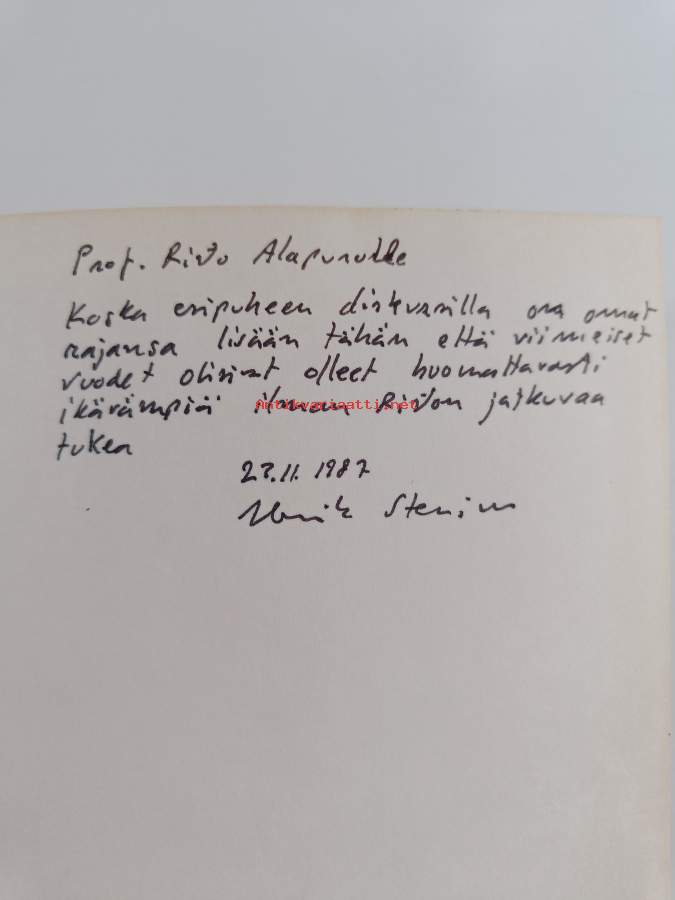 Prof. Risto Alapurolle
Koska esipuheen diskurssilla on omat
rajansa lisään tähän että viimeiset
vuodet olisivat olleet huomattavasti
ikävämpiä ilman Riston jatkuvaa
tukea
Antikvariaatti.net
23.11.1987
Henrik Stenius